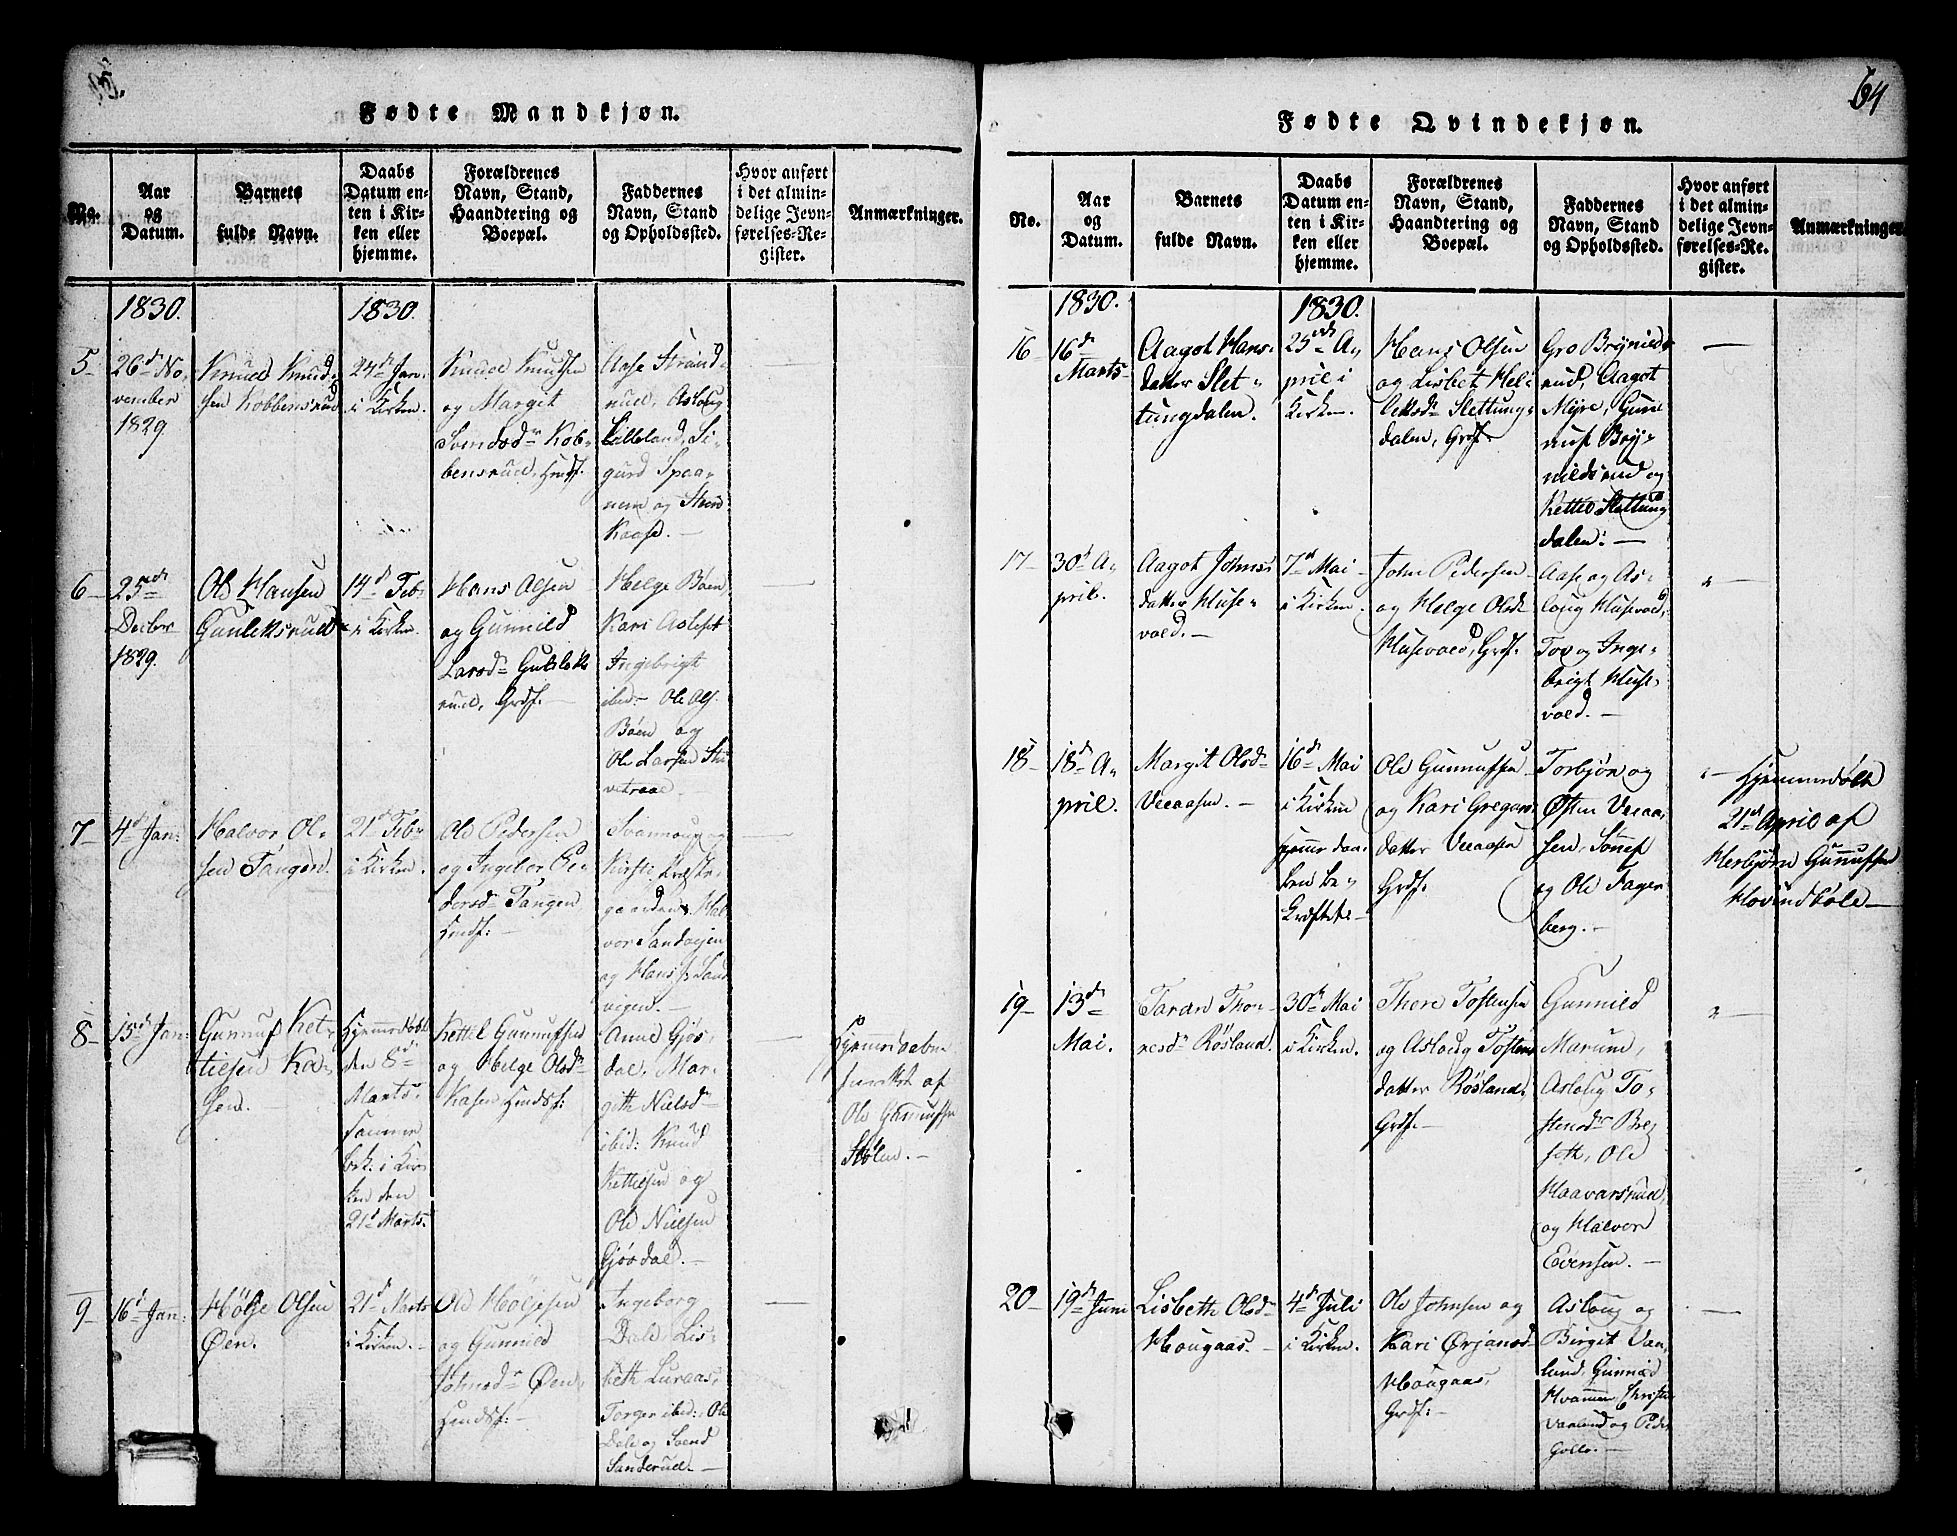 64
Fødte Mandkjøn.
No.
Aar
og
Datum.
Barnets
fulde Navn.
Daabs
Datum en-
ten i Kir-
ken eller
hjemme.
Forældrenes
Navn, Stand,
Haandtering og
Boepæl.
Faddernes
Navn, Stand
og Opholdssted.
Hvor anført
i det almin-
delige Jevn-
førelses-Re-
gister.
Anmærkninger.
1830.
1830.
5
26d No-
vember
1829.
Knud Knud-
sen Kobbensrud
24d Jan.
i Kirken.
Knud Knudsen
og Margit
Svendsd. Kob-
bensrud, Husf.
Aase Strand-
rud, Aslaug
Lilleland, Si-
gurd Spaa-
nem og Steen
Kaase.
6
25de
Decbr
1829.
Ole Hansen
Gulleksrud
14d Feb.
i Kirken.
Hans Olsen
og Gunnild
Larsd. Gulleks-
rud, Grdf.
Helge Bøen,
Kari
Ingebrigt
ibid. Ole Ols.
Bøen og
Ole Larsen
7
4d Jan.
Halvor Ol-
sen Tangen.
21d Feb.
i Kirken.
Ole Pedersen
og Ingebor Pe-
dersd. Tangen,
Husf.
Svannoug og
Kirsti Præste-
gaarden, Hal-
vor Sandvigen
og Hans s. Sand-
vigen.
8
15d Jan.
Gunnuf Ket-
tilsen Kaa-
sen.
Hjemmedøbt
den 8de
Marts.
bek. i Kir-
ken den
21d Marts.
Kettel Gunnufsen
og Helge Olsd.
Kasen Husf.
Anne Gjøs-
dal, Mar-
gith Nielsd.
ibid: Knud
Kettilsen og
Ole Nielsen
Gjøsdal.
Hjemmedaaben
forrettet af
Ole Gunnufsen
Stølen.
9
16d Jan.
Hølje Olsen
Øen.
21d Marts
i Kirken.
Ole Høljesen
og Gunnild
Johnsd. Øen,
Husf.
Ingeborg
Dale, Lis-
beth Luraas,
Torger ibid., Ole
Dale og Svend
Sanderud.
Fødte Qvindekjøn.
No.
Aar
og
Datum.
Barnets
fulde Navn.
Daabs
Datum en-
ten i Kir-
ken eller
hjemme.
Forældrenes
Navn, Stand,
Haandtering og
Boepæl.
Faddernes
Navn, Stand
og Opholdssted.
Hvor anført
i det almin-
delige Jevn-
førelses-Re-
gister.
Anmærkninger.
1830.
1830.
16
16d
Marts
Aagot Hans-
datter Slet-
tungdalen.
25de A-
pril i
Kirken.
Hans Olsen
og Lisbet Hel-
leksd. Slettung-
dalen, Grdf.
Gro Brynilds-
rud, Aagot
Mijre, Gun-
nuf Bryn-
nildsrud og
Kettil Slettung
dalen.
17
30d A-
pril.
Aagot Johns-
datter Huse-
vold.
7de Mai
i Kirken.
John Pedersen
og Helge Olsd.
Husevold, Grdf.
Aase og As-
loug Husevold,
Tov og Inge-
brigt Huse-
vold.
18
18d A-
pril.
Margit Olsd.
Veeaasen.
16d Mai
i Kirken
hjemmedaa-
ben be-
kræftet
Ole Gunnufsen
og Kari Gregars
datter Veeaasen
Grdf.
Torbjøn og
Østen Veeaa-
sen, Tønef
og Ole Fager-
berg.
Hjemmedøbt
21d April af
Herbjørn Gunnufsen
Hovindbøle
19
13d
Mai.
Taran Tho-
resd. Røsland.
30d Mai
i Kirken.
Thore Tostensen
og Asloug Tostens
datter Røsland,
Grdf.
Gunnild
Marum,
Asloug To-
stensd. Bre-
foth, Ole
Haavarsrud,
og Halvor
Evensen.
20
19d Juni
Lisbeth Olsd.
Hougaas.
4d Juli
i Kirken.
Ole Johnsen og
Kari Ørjansd.
Hougaas,
Grdf.
Asloug og
Birgit Vaa-
lund, Gunnild
Hvammen, Christen
Vaalund og Peder
Gollo.